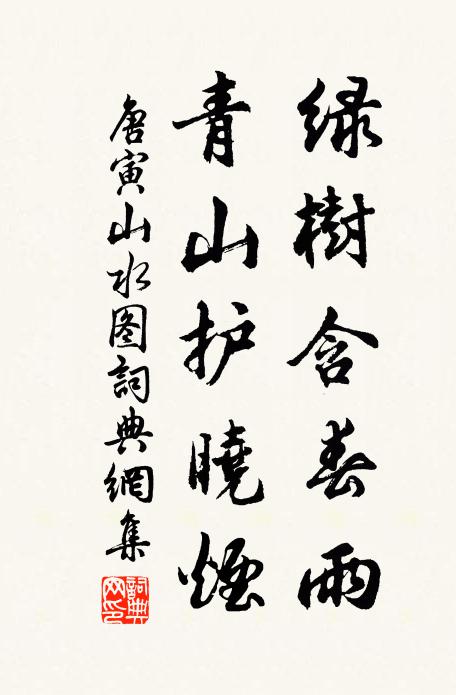 绿樹含春雨
青山护曉煙
唐寅山水图詞典網集
詞典
网印